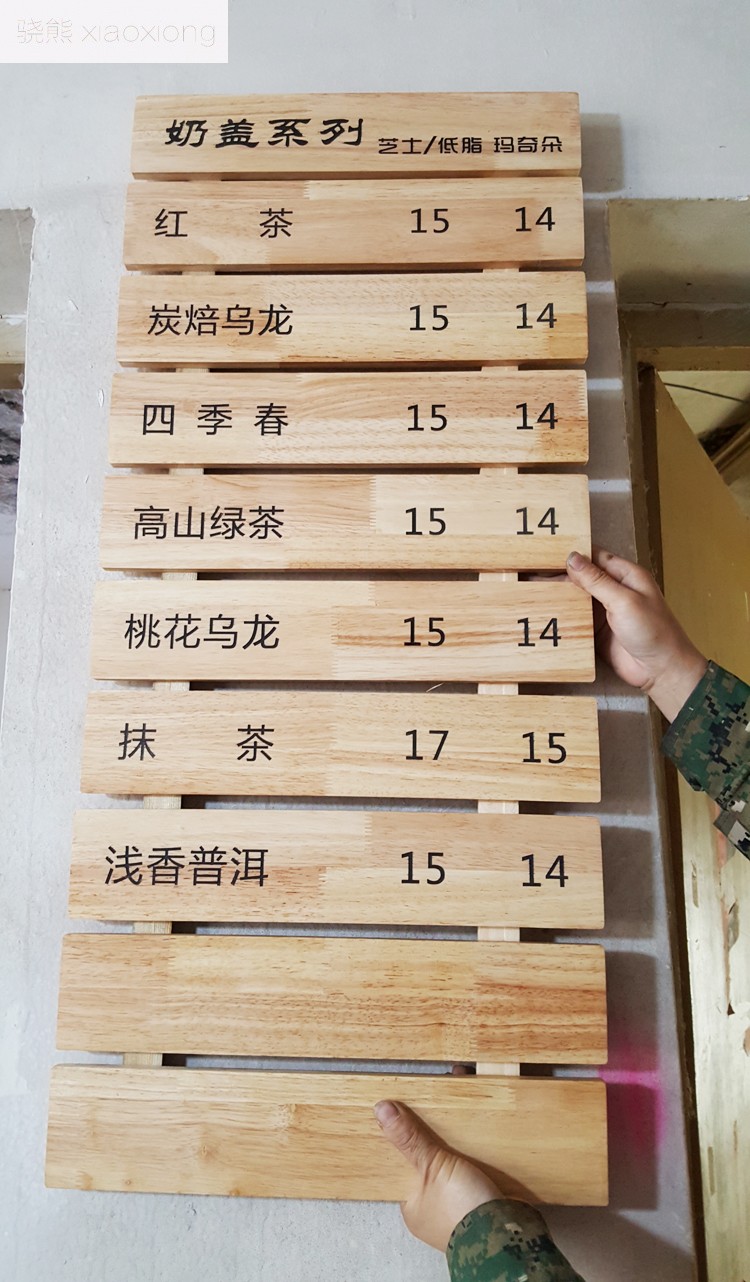 骁熊 xiaoxiong
奶盖系列 芝士/低脂 玛奇朵
红 茶 15 14
炭焙乌龙 15 14
四 季 春 15 14
高山绿茶 15 14
桃花乌龙 15 14
抹 茶 17 15
浅香普洱 15 14